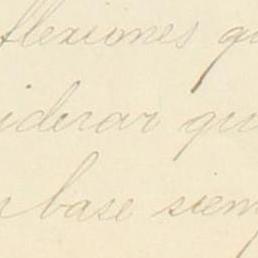 flexiones qu
iderar qu
base siem